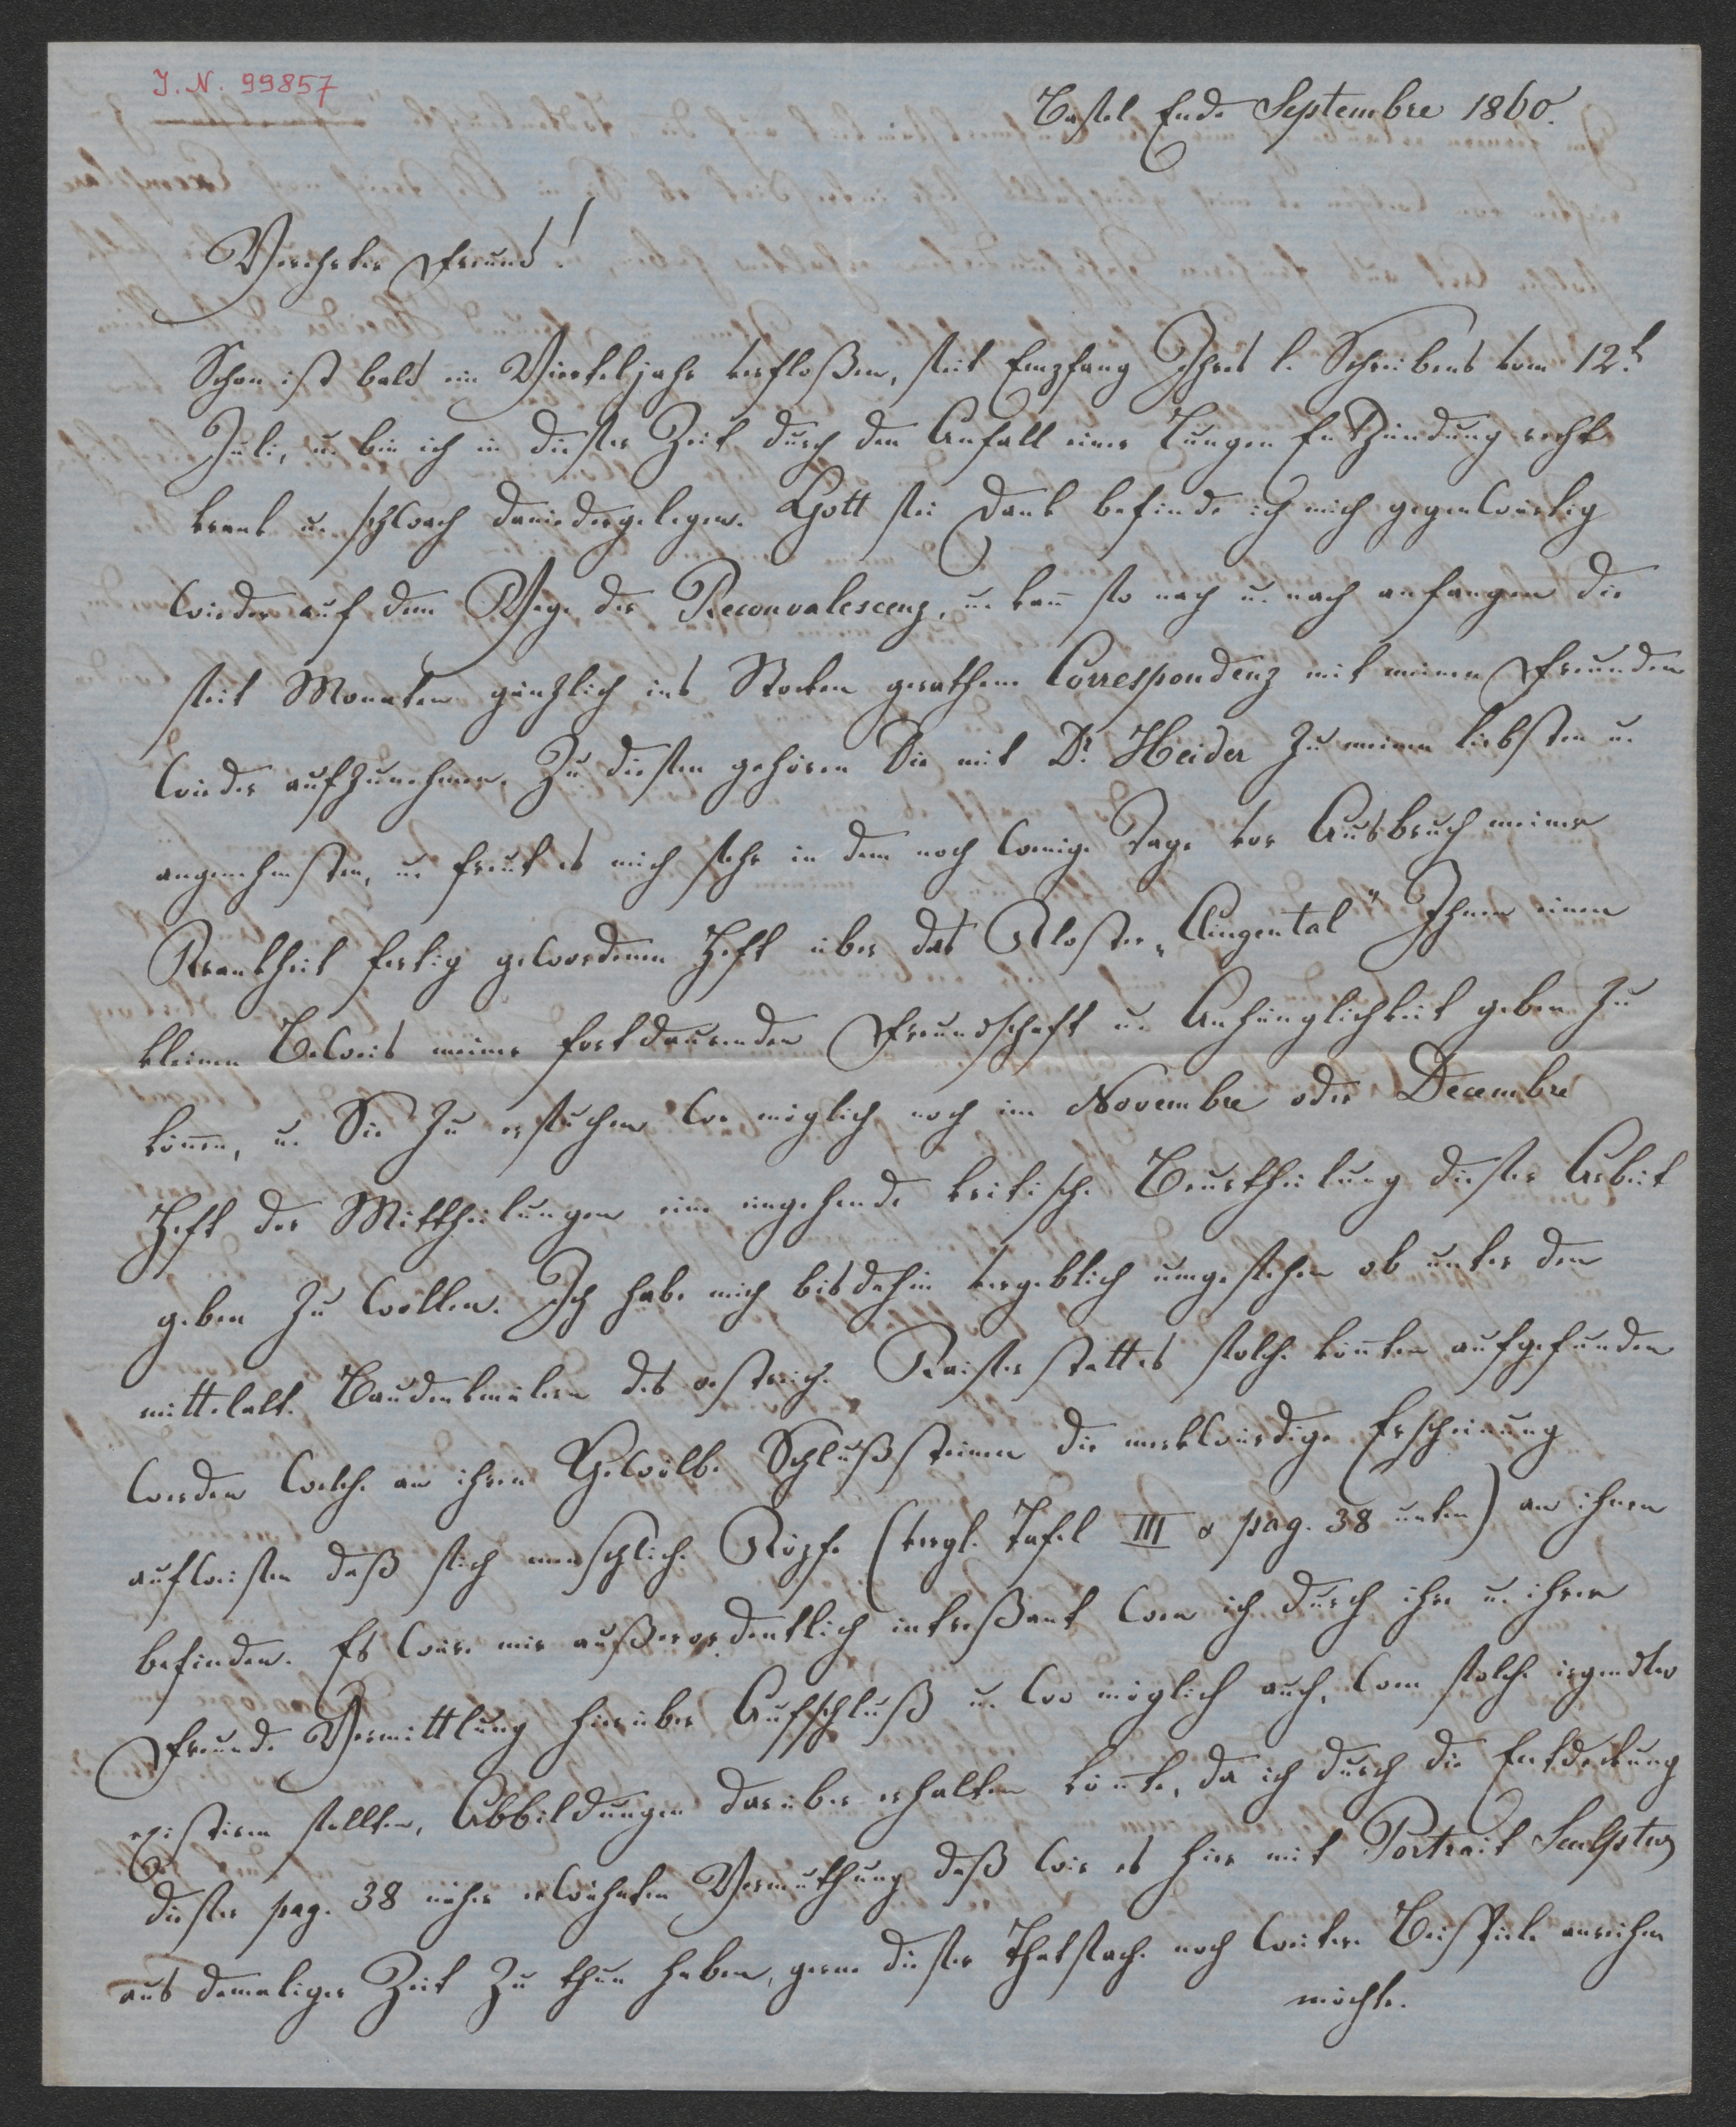 I. N. 99857
Basel Ende Septembre 1860.
Verehrter Freund!
Schon ist bald ein Vierteljahr verfloßen, seit Empfang Ihres l. Schreibens vom 12.t
Juli, u. bin ich in dieser Zeit durch den Anfall einer Lungen Entzündung recht
krank u. schwach daniedergelegen. Gott sei Dank befinde ich mich gegenwärtig
wieder auf dem Wege der Reconvalescenz, u. kan̄ so nach u. nach anfangen die
seit Monaten gänzlich ins Stocken gerathene Correspondenz mit meinen Freunden
wieder aufzunehmen. Zu diesen gehören Sie mit Dr. Heider zu meinen liebsten u.
angenehmsten, u. freut es mich sehr in dem noch wenige Tage vor Ausbruch meiner
Krankheit fertig gewordenen Heft über das Kloster „Klingental" Ihnen einen
kleinen Beweis meiner fortdaurenden Freundschaft u. Anhänglichkeit geben zu
kön̄en, u. Sie zu ersuchen wo möglich noch im Novembre oder Decembre
Heft der Mittheilungen eine eingehende kritische Beurtheilung dieser Arbeit
geben zu wollen. Ich habe mich bisdahin vergeblich umgesehen ob unter den
mittelalt. Baudenkmälern des oestreich. Kaiserstattes solche kön̄ten aufgefunden
werden welche an ihren Gewölbe Schlußsteinen die merkwürdige Erscheinung
aufweisen daß sich menschliche Köpfe (vergl. Tafel III & pag. 38 unten) an ihnen
befinden. Es wäre mir außerordentlich intreßant wen ich durch ihre u. ihrer
Freunde Vermittlung hierüber Aufschluß u. wo möglich auch, wen solche irgendwo
existiren sollten, Abbildungen darüber erhalten kön̄te, da ich durch die Entdeckung
dieser pag. 38 näher erwähnten Vermuthung daß wir es hier mit Portrait Sculptur
aus damaliger Zeit zu thun haben, gerne dieser Thatsache noch weitere Beispiele anreihen
möchte.